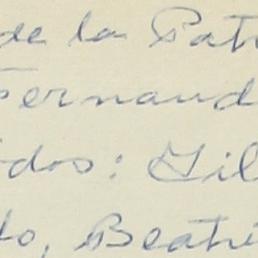 de la Pat
Fernand
idos: Gil
to, Beatri